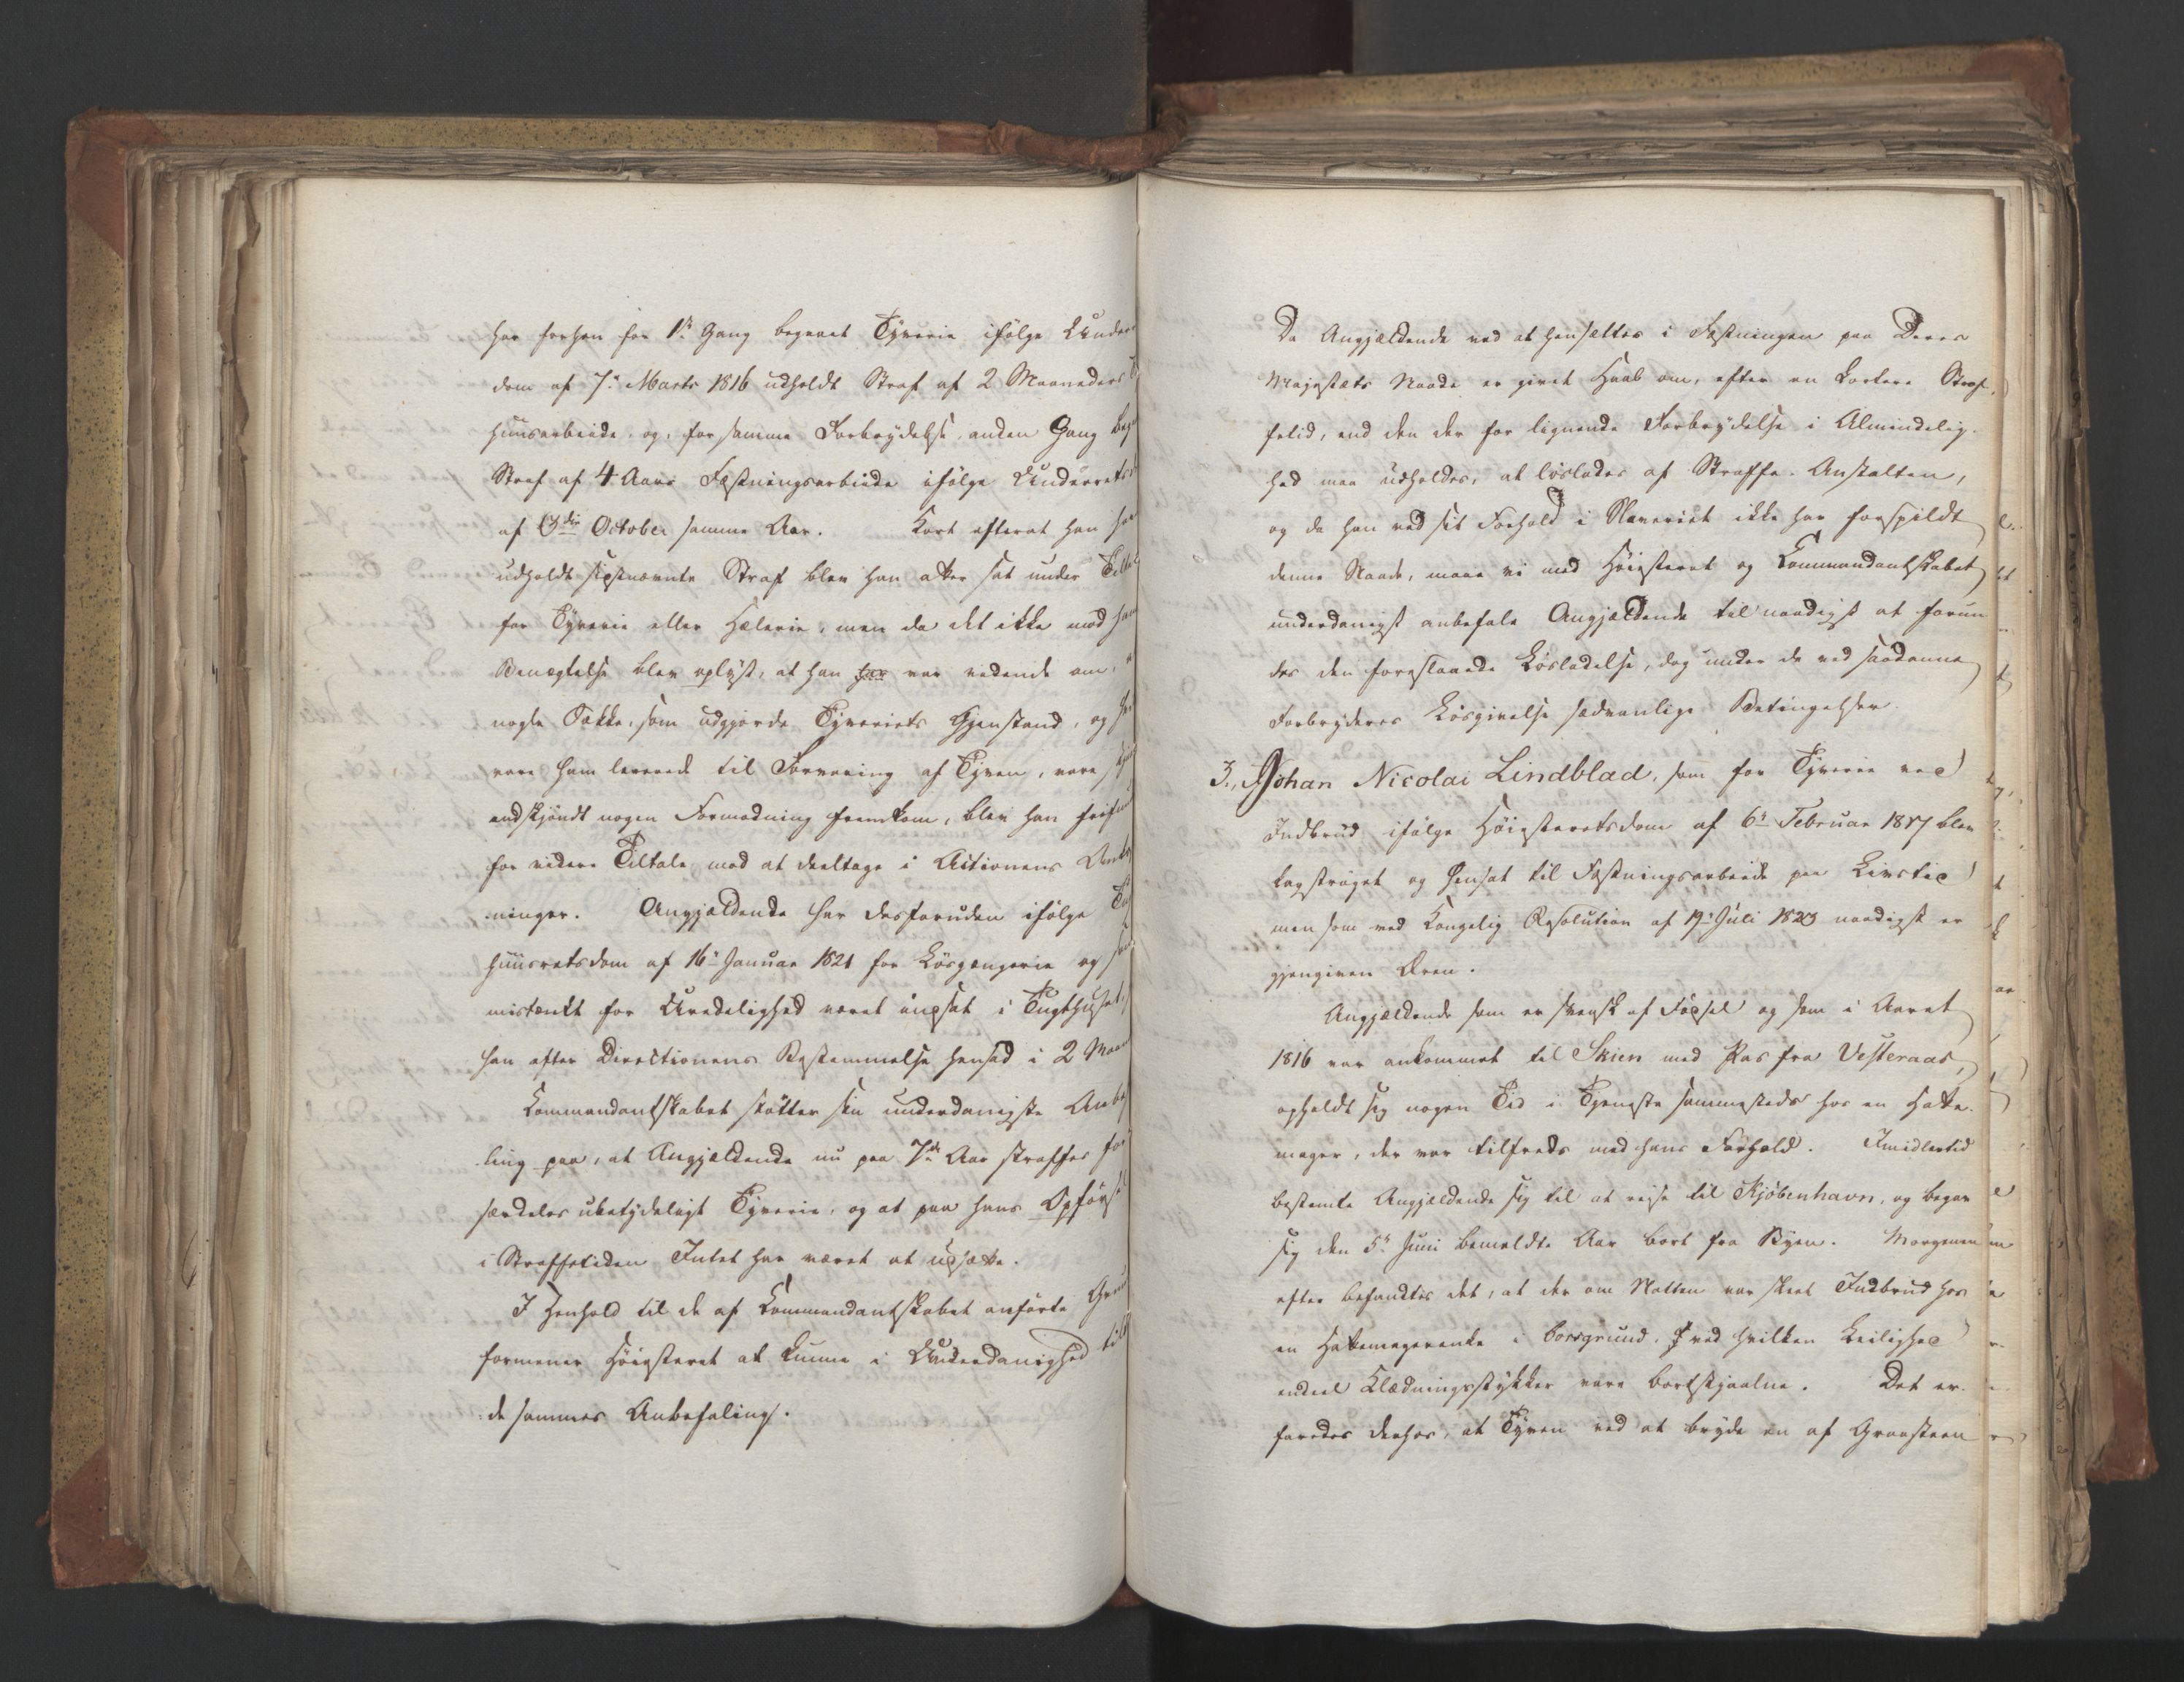 har forhen for 1ste Gang begaaet Tyverie ifølge Under
dom af 7de Marts 1816 udholdt Straf af 2 Maaneders
huusarbeide, og, for samme Forbrydelse, anden Gang beg
Straf af 4 Aars Fæstningsarbeide ifølge Underrets
af 3die October samme Aar. Kort efterat han ha
udholdt sidstnævnte Straf blev han atter sat under Tiltal
for Tyverie eller Hælerie, men da det ikke mod han
Benægtelse blev oplyst, at han har var vidende om,
nogle Sække, som udgjorde Tyveriets Gjenstand, og
vare ham leverede til Forvaring af Tyven, vare
endskjøndt nogen Formodning fremkom, blev han frifun
for videre Tiltale mod at deeltage i Actionens Om
ninger. Angjældende har desforuden ifølge Tu
huusretsdom af 16de Januar 1821 for Løsgængerie og
mistænkt for Uredelighed været indsat i Tugthuset,
han efter Directionens Bestemmelse hensad i 2 Maan
Commandantskabet støtter sin underdanigste Anbef
ling paa, at Angjældende nu paa 7de Aar straffes for
særdeles ubetydeligt Tyverie, og at paa hans Opførs
i Straffetiden Intet har været at udsætte.
I Henhold til de af Commandantskabet anførte Grun
formener Høiesteret at kunne i Underdanighed til
de sammes Anbefaling.
Da Angjældende ved at hensættes i Fæstningen paa Deres
Majestæts Naade er givet Haab om, efter en kortere Straf
fetid, end den der for lignende Forbrydelse i Almindelig-
hed maa udholdes, at løslades af Straffe-Anstalten,
og da han ved sit Forhold i Slaveriet ikke har forspildt
denne Naade, maae vi med Høiesteret og Commandantskabet
underdanigst anbefale Angjældende til naadigst at forun
des den foreslaaede Løsladelse, dog under de ved saadanne
Forbryderes Løsgivelse sædvanlige Betingelser.
3., Johan Nicolai Lindblad, som for Tyverie ved
Indbrud ifølge Høiesteretsdom af 6te Februar 1817 blev
kagstrøget og hensat til Fæstningsarbeide paa Livstid
men som ved Kongelig Resolution af 19de Juli 1823 naadigst er
gjengiven Æren.
Angjældende som er svensk af Fødsel og som i Aaret
1816 var ankommet til Skien med Pas fra Vesteraas,
opholdt sig nogen Tid i Tjeneste sammesteds hos en Hatte-
mager, der var tilfreds med hans Forhold. Imidlertid
bestemte Angjældende sig til at reise til Kjøbenhavn, og begav
sig den 5te Juni bemeldte Aar bort fra Byen. Morgenen
efter befandtes det, at der om Natten var skeet Indbrud hos
en Hattemagerenke i Porsgrund, ved hvilken Leilighed
endeel Klædningsstykker vare bortstjaalne. Det er-
faredes derhos, at Tyven ved at bryde en af Graasteen